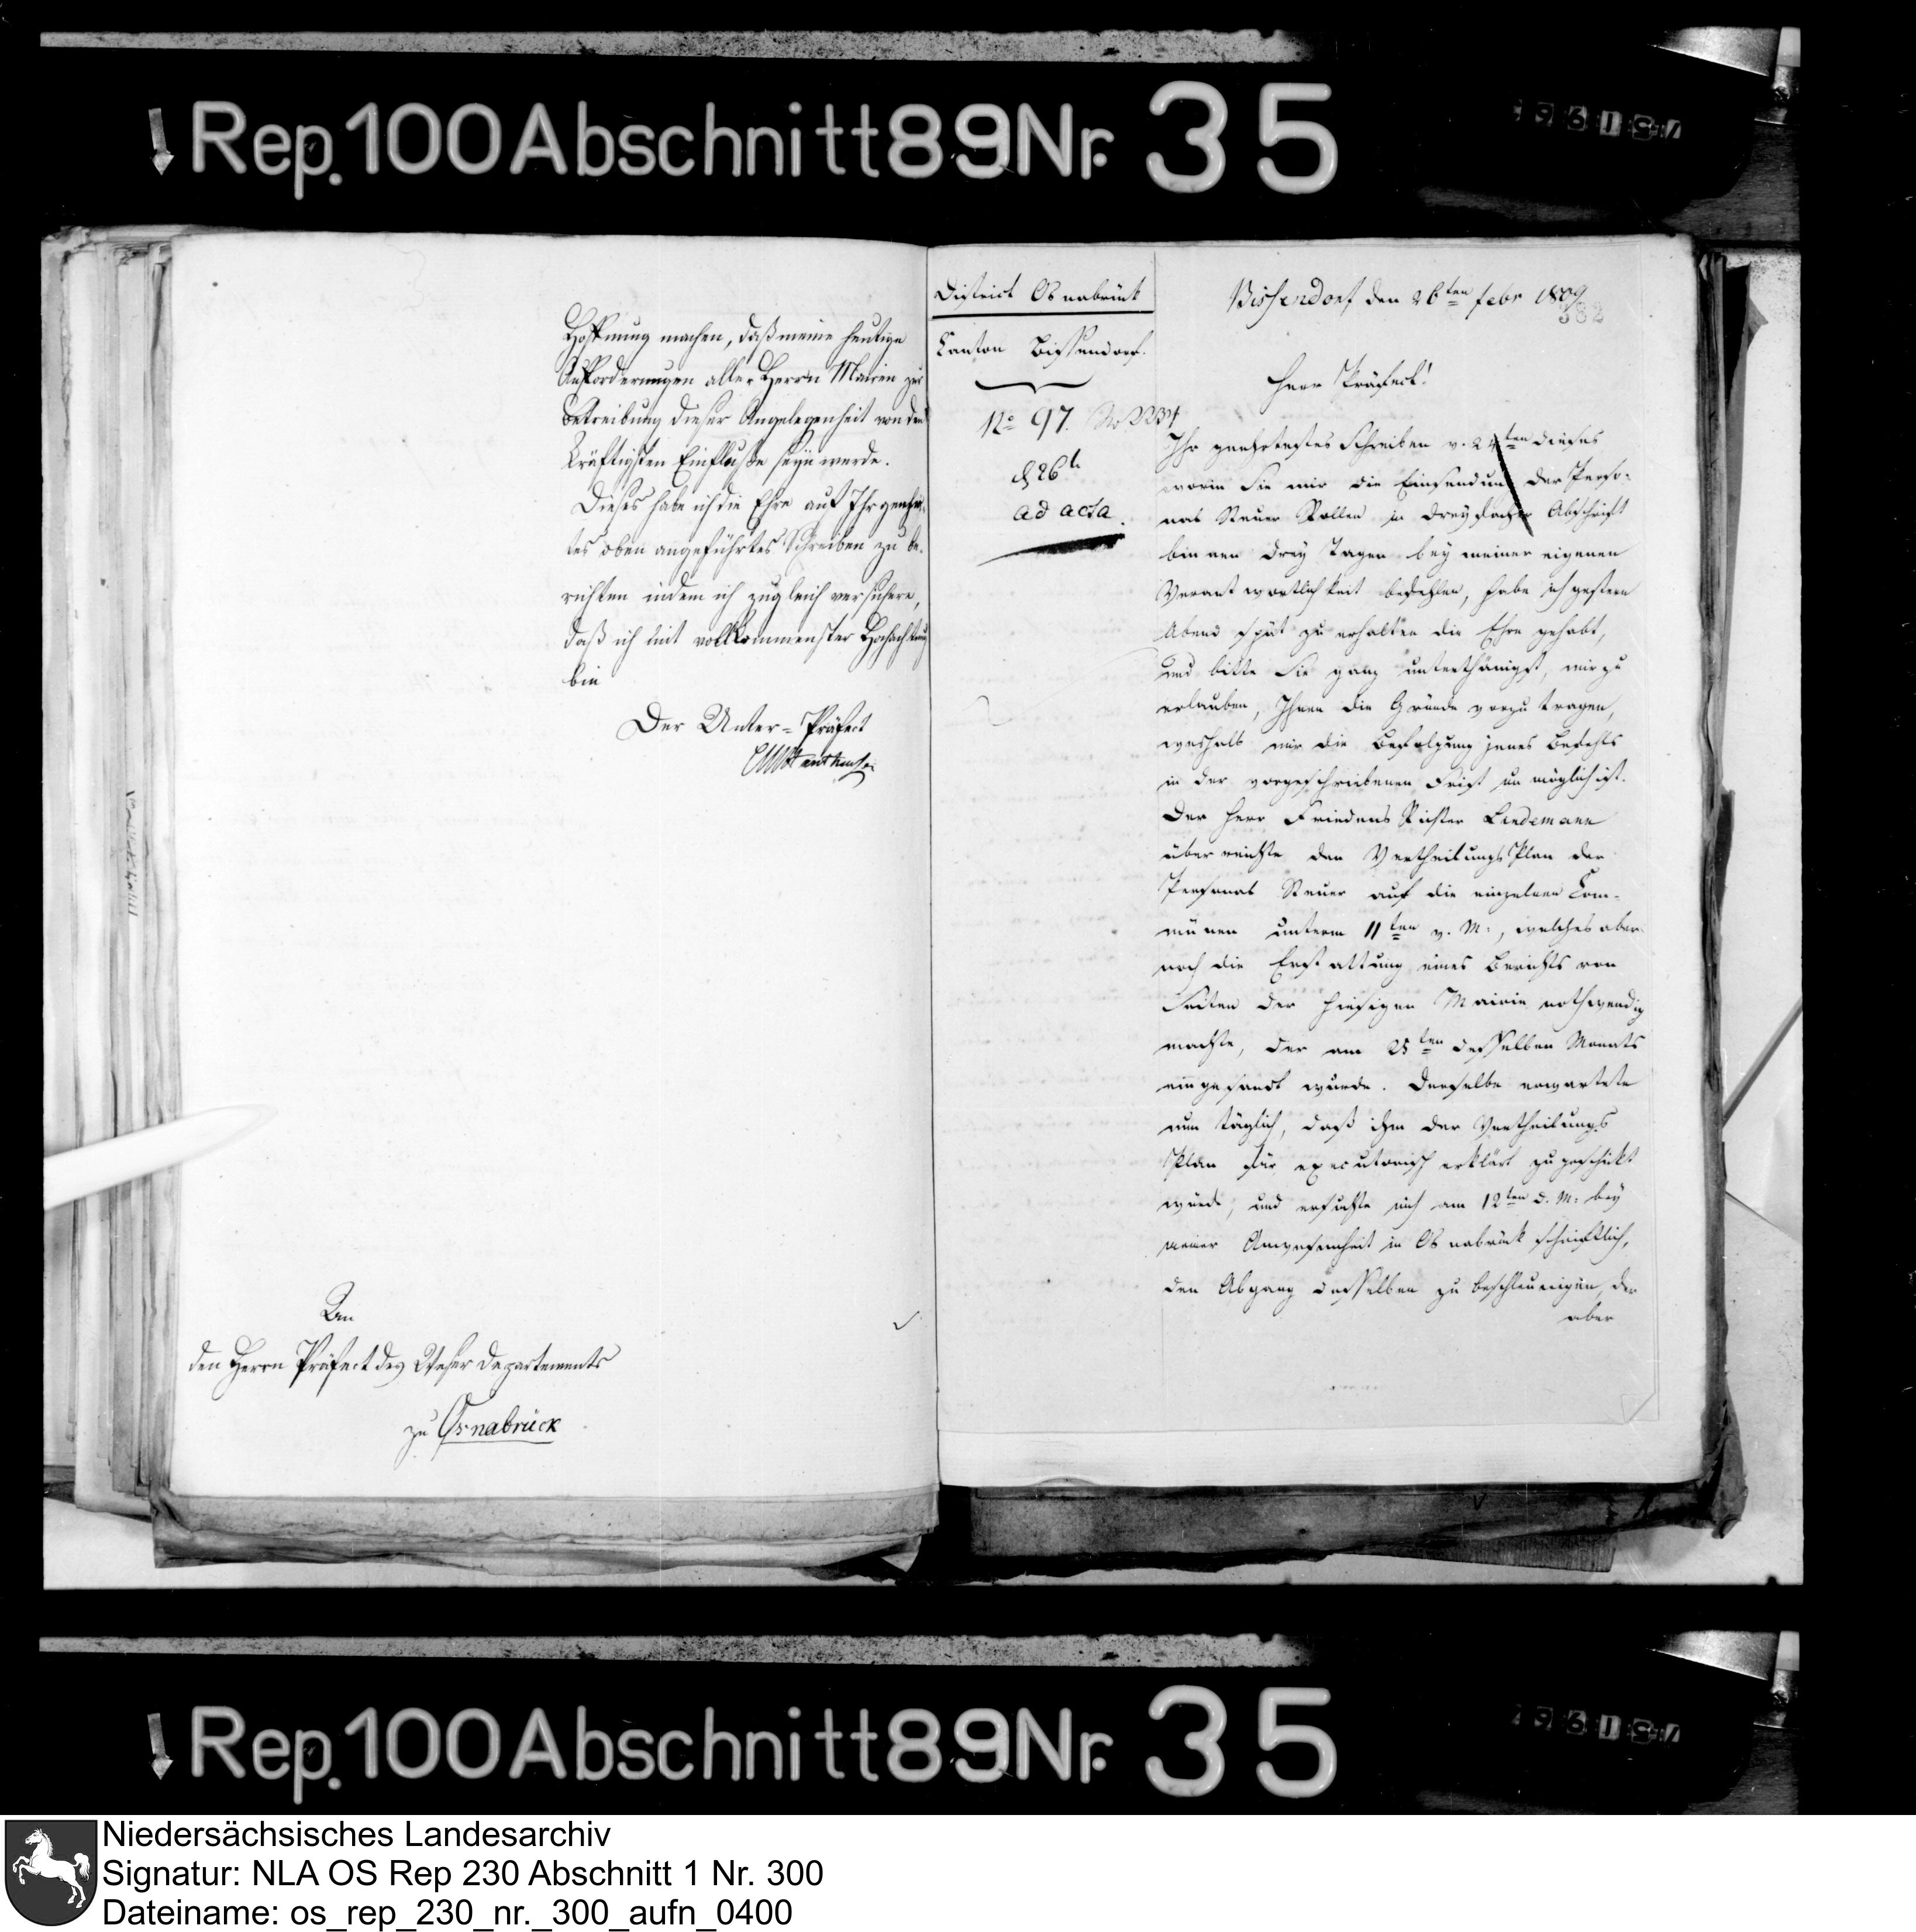 Rep.100Abschnitt89Nr. 35
Hoffnung machen, daß meine heutige
Aufforderungen aller Herrn Mairen zur
Betreibung dieser Angelegenheit von dem
kräftigsten Einfluße seyn werde.
Dieses habe ich die Ehre auf Ihr geehr-
tes oben angeführtes Schreiben zu be-
richten indem ich zugleich versichere,
daß ich mit vollkommenster Hochachtung
bin
Der Unter-Präfect
An
den Herrn Präfect des Weser Departements
zu Osnabrück
District Osnabrück
Canton Bissendorf.
No 97.
ad acta.
Bissendorf den 26ten febr 1809
382
Herr Präfect!
Ihr geehrtestes Schreiben v. 24ten dieses
worin Sie mir die Einsendung der Perso-
nal Steuer Rollen in dreyfacher Abschrift
binnen drey Tagen bey meiner eigenen
Verantwortlichkeit befehlen, habe ich gestern
Abend spät zu erhalten die Ehre gehabt,
und bitte Sie ganz unterthänigst, mir zu
erlauben, Ihnen die Gründe vorzutragen,
weshalb mir die Befolgung jenes Befehls
in der vorgeschriebenen Frist unmöglich ist.
Der Herr Friedens Richter Lindemann
überreichte den Vertheilungs Plan der
Personal Steuer auf die einzelnen Com-
münen unterm 11ten v. M:, welches aber
noch die Erstattung eines Berichts von
Seiten der hiesigen Mairie nothwendig
machte, der am 25ten desselben Monats
eingesandt wurde. Derselbe erwartete
nun täglich, daß ihm der Vertheilungs
Plan für executorisch erklärt zugeschickt
würde, und ersuchte mich am 12ten d. M: bey
meiner Anwesenheit in Osnabrück schriftlich,
den Abgang desselben zu beschleunigen, der
aber
Rep.100Abschnitt89Nr. 35
Niedersächsisches Landesarchiv
Signatur: NLA OS Rep 230 Abschnitt 1 Nr. 300
Dateiname: os_rep_230_nr._300_aufn_0400